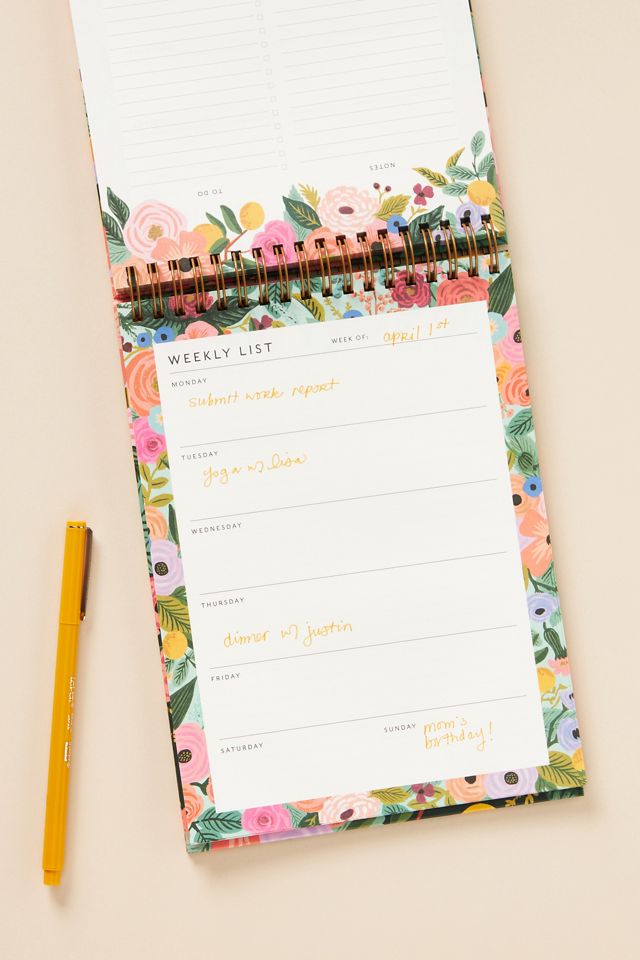 TO DO
NOTES
WEEKLY LIST
WEEK OF: april 1st
MONDAY
submit work report
TUESDAY
yoga w/ lisa
WEDNESDAY
THURSDAY
dinner w/ justin
FRIDAY
SATURDAY
SUNDAY mom's
birthday!